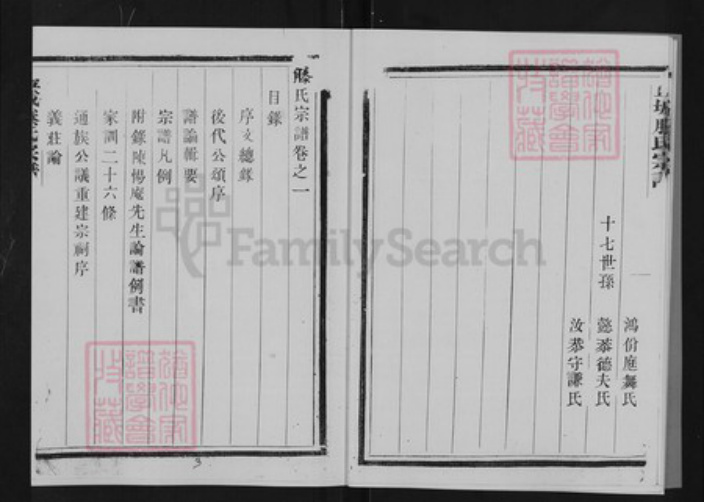 十七世孫
鴻份庭舞氏
懿恭德夫氏
汝恭守謙氏
滕氏宗譜卷之一
目錄
序文總錄
後代公頌序
譜論輯要
宗譜凡例
附錄陳惕庵先生論譜例書
家訓二十六條
通族公議重建宗祠序
義莊論
FamilySearch
3